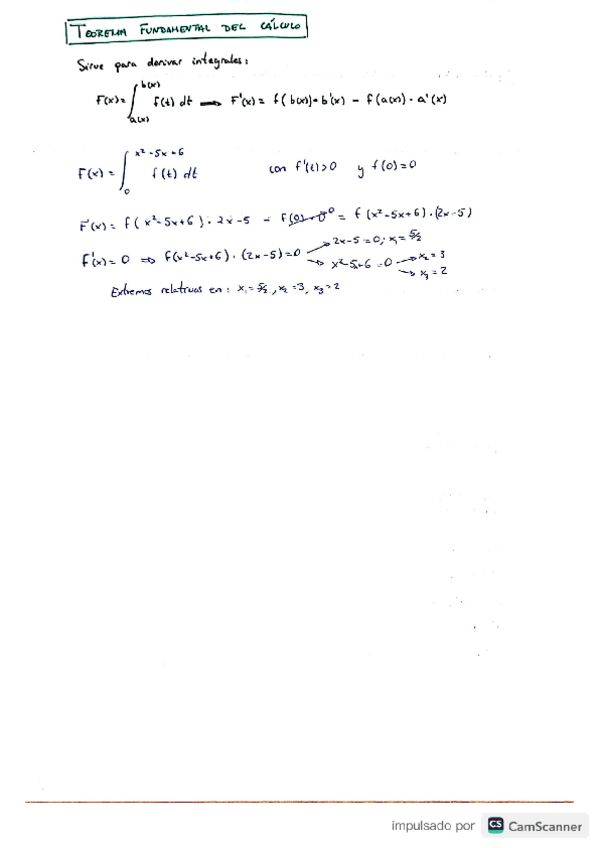 TEOREMA FUNDAMENTAL DEL CÁLCULO
Sirve para derivar integrales:
F(x) = ∫_{a(x)}^{b(x)} f(t) dt → F'(x) = f(b(x)) · b'(x) - f(a(x)) · a'(x)
F(x) = ∫_{0}^{x²-5x+6} f(t) dt con f'(t)>0 y f(0)=0
F'(x) = f(x²-5x+6) · 2x-5 - f(0)·0 = f(x²-5x+6)·(2x-5)
F'(x) = 0 ⇒ f(x²-5x+6)·(2x-5)=0 → 2x-5=0; x₁=5/2
→ x²-5x+6=0 → x₂=3
→ x₃=2
Extremos relativos en: x₁=5/2, x₂=3, x₃=2
impulsado por CS CamScanner